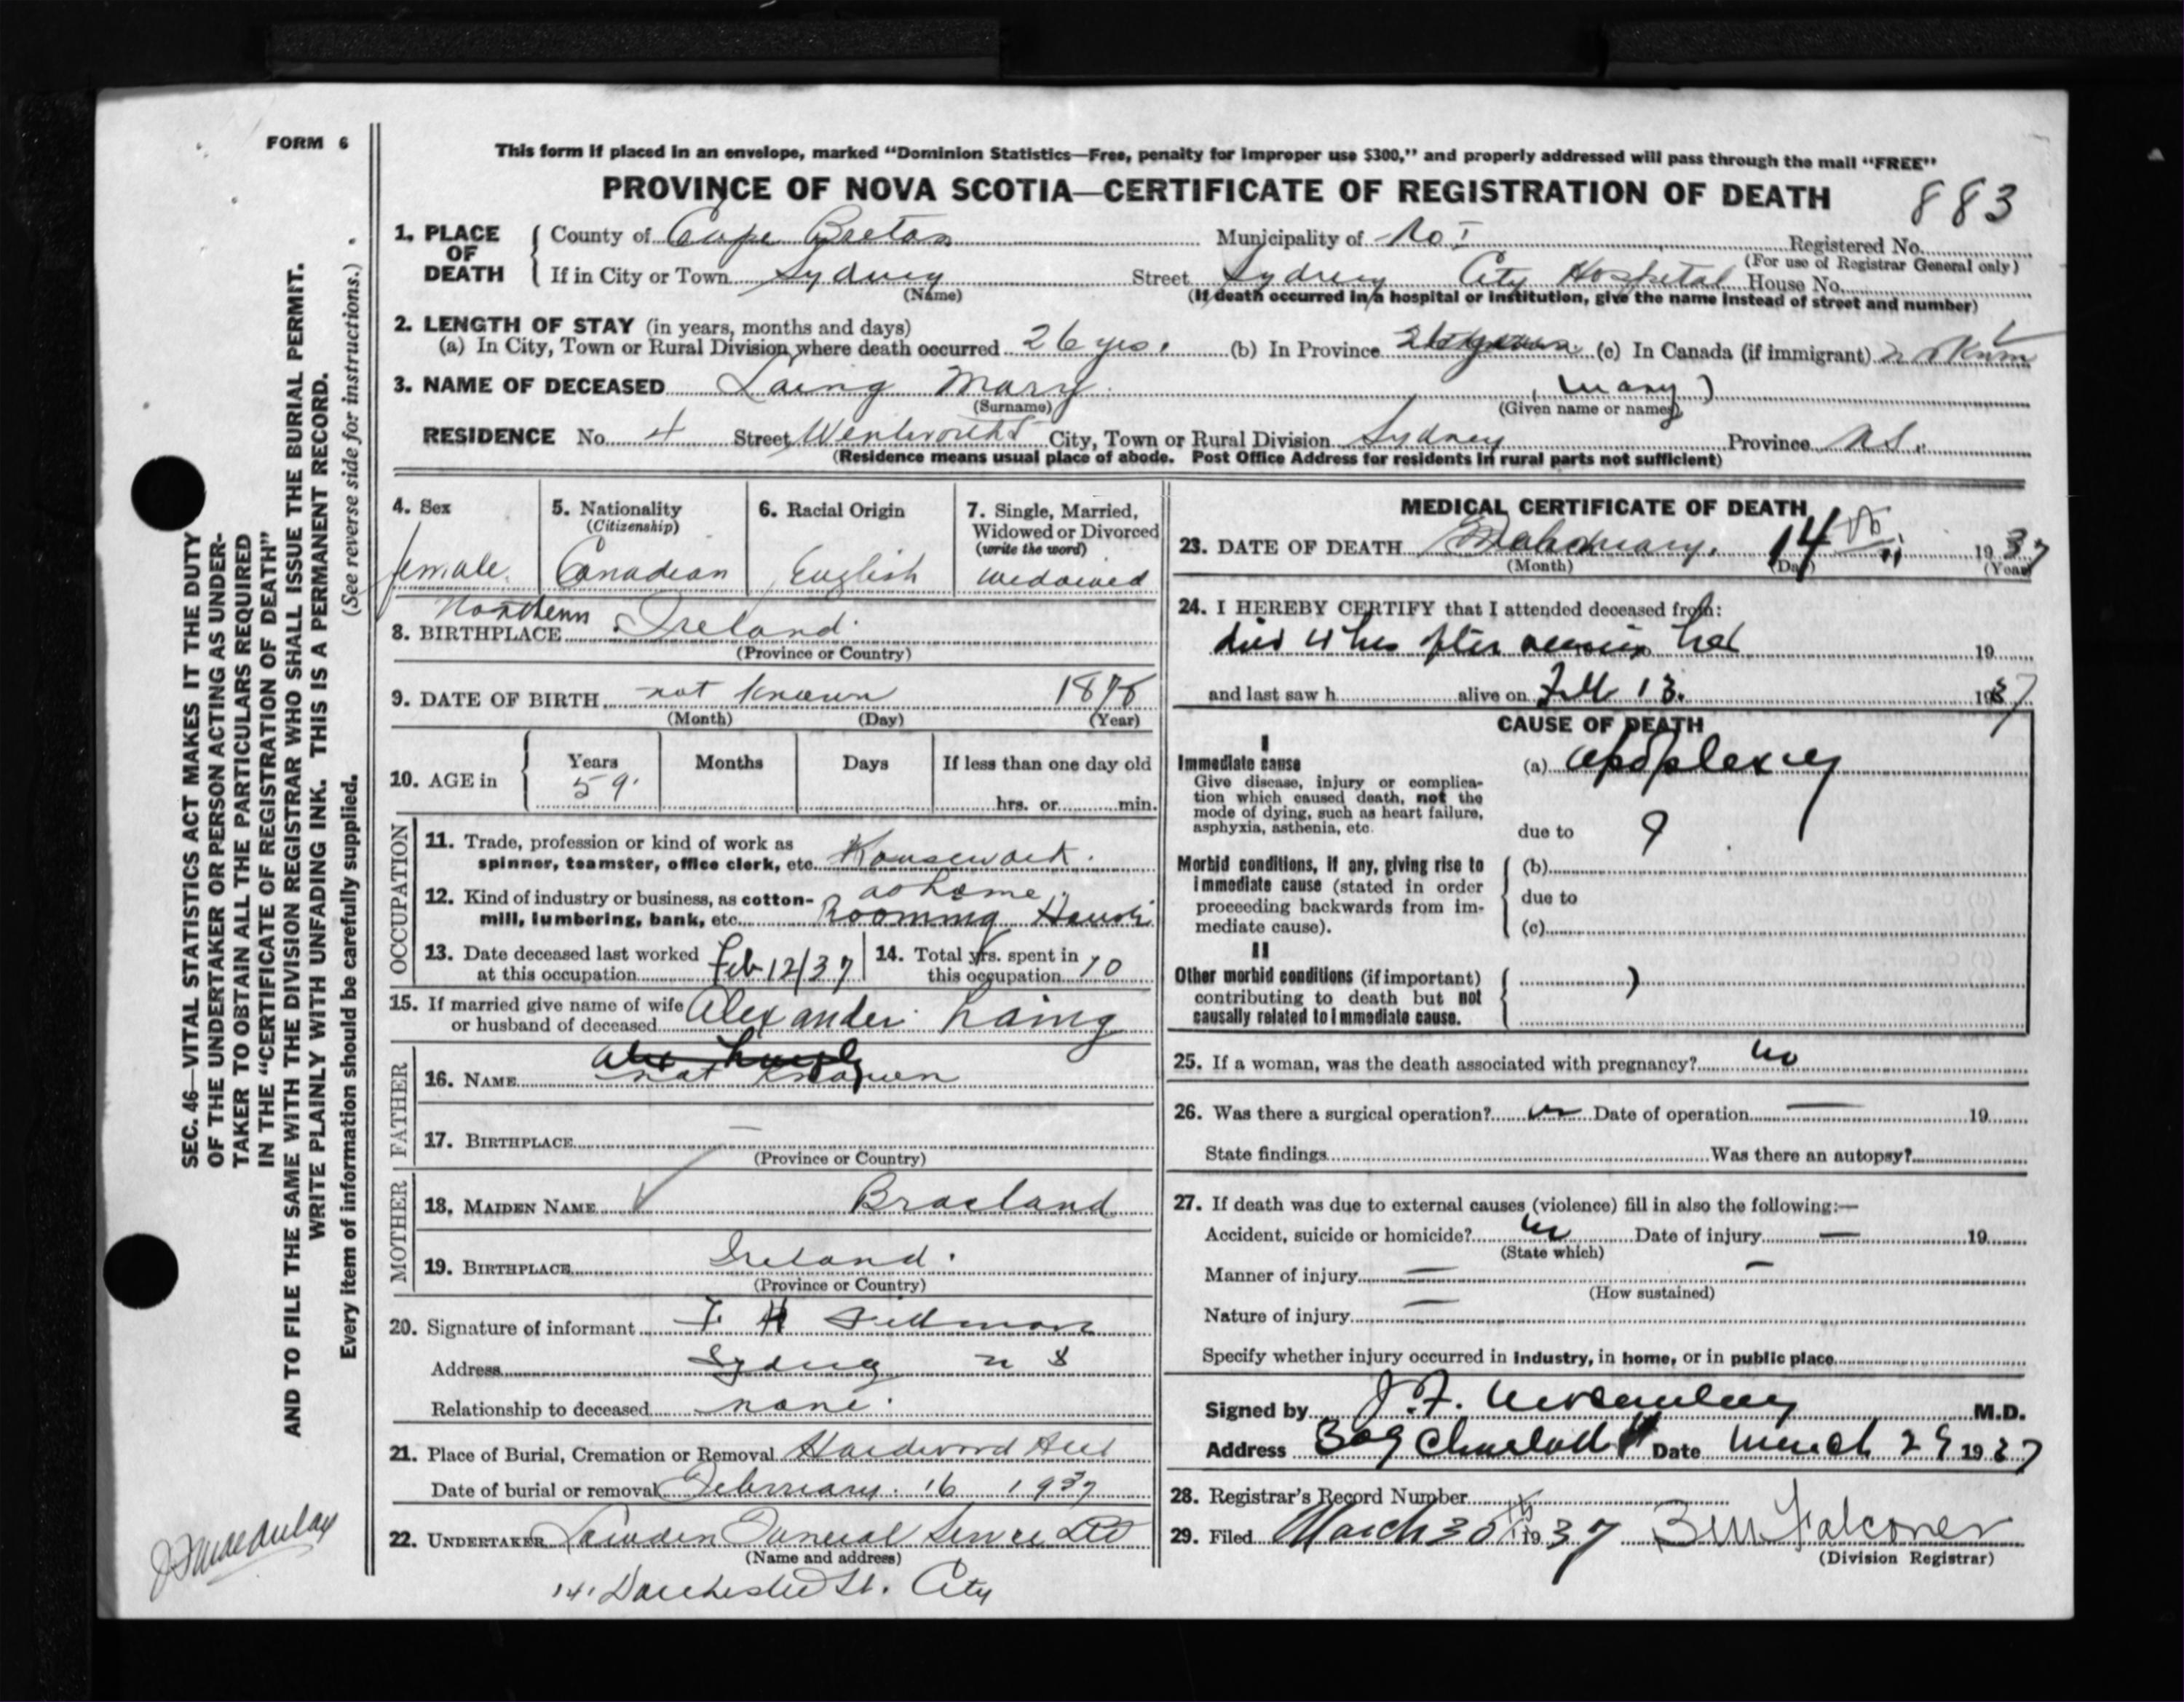 FORM 6
This form if placed in an envelope, marked "Dominion Statistics—Free, penalty for improper use $300," and properly addressed will pass through the mail "FREE"
PROVINCE OF NOVA SCOTIA—CERTIFICATE OF REGISTRATION OF DEATH
883
1. PLACE OF DEATH
County of Cape Breton Municipality of Registered No.
(For use of Registrar General only)
If in City or Town Sydney Street Sydney City Hospital House No.
(Name) (If death occurred in a hospital or institution, give the name instead of street and number)
2. LENGTH OF STAY (in years, months and days)
(a) In City, Town or Rural Division where death occurred 26 yrs. (b) In Province (c) In Canada (if immigrant)
3. NAME OF DECEASED Laing Mary (Mary)
(Surname) (Given name or names)
RESIDENCE No. 4 Street Wentworth St City, Town or Rural Division Sydney Province N.S.
(Residence means usual place of abode. Post Office Address for residents in rural parts not sufficient)
4. Sex
female
5. Nationality
(Citizenship)
Canadian
6. Racial Origin
English
7. Single, Married, Widowed or Divorced
(write the word)
widowed
8. BIRTHPLACE Northern Ireland
(Province or Country)
9. DATE OF BIRTH not known 1878
(Month) (Day) (Year)
10. AGE in Years Months Days If less than one day old
59 hrs. or min.
OCCUPATION
11. Trade, profession or kind of work as
spinner, teamster, office clerk, etc. Housework.
12. Kind of industry or business, as cotton-
mill, lumbering, bank, etc. at home Rooming House
13. Date deceased last worked
at this occupation Feb 12/37
14. Total yrs. spent in
this occupation 10
15. If married give name of wife
or husband of deceased Alexander Laing
FATHER
16. NAME not known
17. BIRTHPLACE —
(Province or Country)
MOTHER
18. MAIDEN NAME
19. BIRTHPLACE Ireland.
(Province or Country)
20. Signature of informant F. H.
Address Sydney N S
Relationship to deceased none.
21. Place of Burial, Cremation or Removal Hardwood Hill
Date of burial or removal February. 16 1937
22. UNDERTAKER Funeral Service Ltd
(Name and address)
Dorchester St. City
MEDICAL CERTIFICATE OF DEATH
23. DATE OF DEATH 14th 1937
(Month) (Day) (Year)
24. I HEREBY CERTIFY that I attended deceased from:
died 4 hrs after 19
and last saw h alive on Feb 13. 1937
CAUSE OF DEATH
I
Immediate cause
Give disease, injury or complica-
tion which caused death, not the
mode of dying, such as heart failure,
asphyxia, asthenia, etc.
(a) apoplexy
due to
Morbid conditions, if any, giving rise to
immediate cause (stated in order
proceeding backwards from im-
mediate cause).
(b)
due to
(c)
II
Other morbid conditions (if important)
contributing to death but not
causally related to immediate cause.
25. If a woman, was the death associated with pregnancy? no
26. Was there a surgical operation? no Date of operation — 19
State findings Was there an autopsy?
27. If death was due to external causes (violence) fill in also the following:—
Accident, suicide or homicide? no Date of injury — 19
(State which)
Manner of injury — —
(How sustained)
Nature of injury —
Specify whether injury occurred in industry, in home, or in public place
Signed by J. F. M.D.
Address 309 Charlotte St Date March 29 1937
28. Registrar's Record Number
29. Filed March 30th 1937 Falconer
(Division Registrar)
SEC. 46—VITAL STATISTICS ACT MAKES IT THE DUTY
OF THE UNDERTAKER OR PERSON ACTING AS UNDER-
TAKER TO OBTAIN ALL THE PARTICULARS REQUIRED
IN THE "CERTIFICATE OF REGISTRATION OF DEATH"
AND TO FILE THE SAME WITH THE DIVISION REGISTRAR WHO SHALL ISSUE THE BURIAL PERMIT.
WRITE PLAINLY WITH UNFADING INK. THIS IS A PERMANENT RECORD.
Every item of information should be carefully supplied. (See reverse side for instructions.)